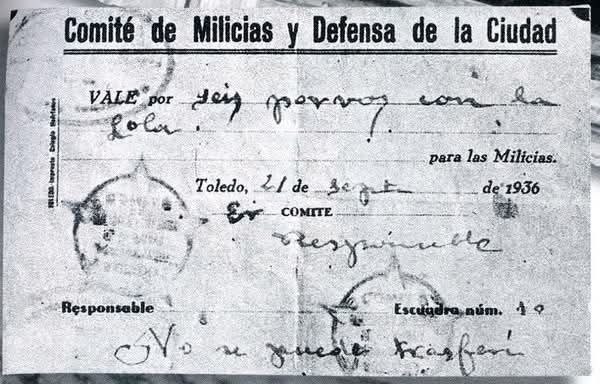 Comité de Milicias y Defensa de la Ciudad
VALE por seis porvos con la
Lola.
para las Milicias.
Toledo, 21 de sept de 1936
Er COMITE
Responsable Escuadra núm. 10
No se puede trasferi